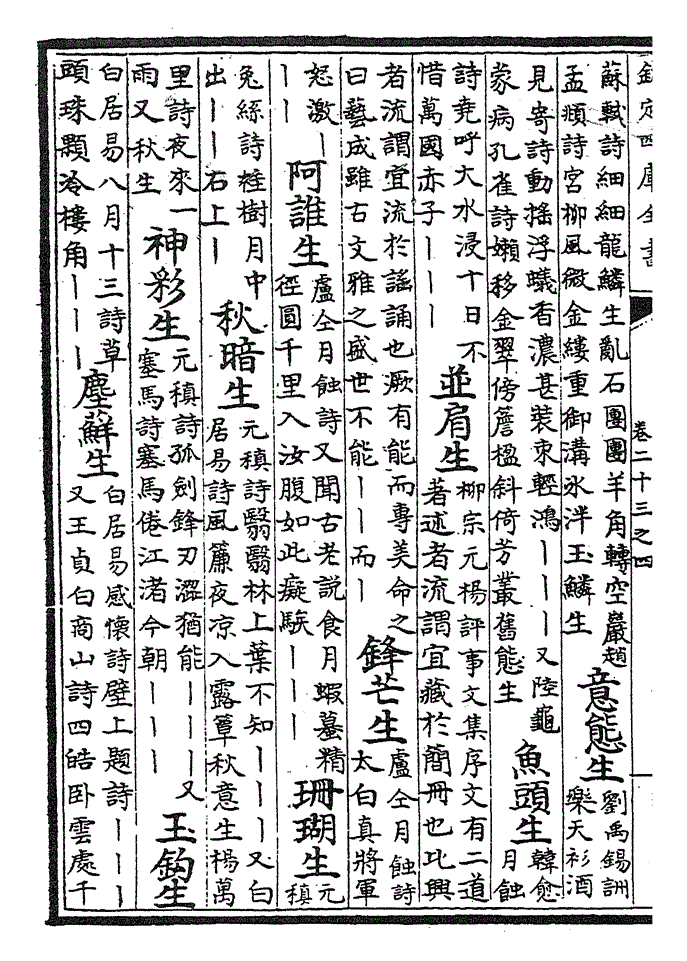 欽定四庫全書
卷二十三之四
蘇軾詩細細龍鱗生亂石團團羊角轉空巖趙
孟頫詩宮柳風微金縷重御溝冰泮玉鱗生
意態生
劉禹錫詶
樂天衫酒
見寄詩動搖浮蟻香濃甚裝束輕鴻丨丨丨又陸龜
蒙病孔雀詩嬾移金翠傍簷楹斜倚芳叢舊態生
魚頭生
韓愈
月蝕
詩堯呼大水浸十日不
惜萬國赤子丨丨丨
並肩生
柳宗元楊評事文集序文有二道
著述者流謂宜藏於簡冊也比興
者流謂宜流於謠誦也厥有能而專美命之
曰藝成雖古文雅之盛世不能丨丨而丨
鋒芒生
盧仝月蝕詩
太白真將軍
怒激丨
丨丨
阿誰生
盧仝月蝕詩又聞古老說食月蝦蟇精
徑圓千里入汝腹如此癡騃丨丨丨
珊瑚生
元
稹
兔絲詩桂樹月中
出丨丨石上丨
秋暗生
元稹詩翳翳林上葉不知丨丨丨又白
居易詩風簾夜凉入露簟秋意生楊萬
里詩夜來一
雨又秋生
神彩生
元稹詩孤劍鋒刃澀猶能丨丨丨又
塞馬詩塞馬倦江渚今朝丨丨丨
玉鈎生
白居易八月十三詩草
頭珠顆冷樓角丨丨丨
塵蘚生
白居易感懷詩壁上題詩丨丨丨
又王貞白商山詩四皓卧雲處千